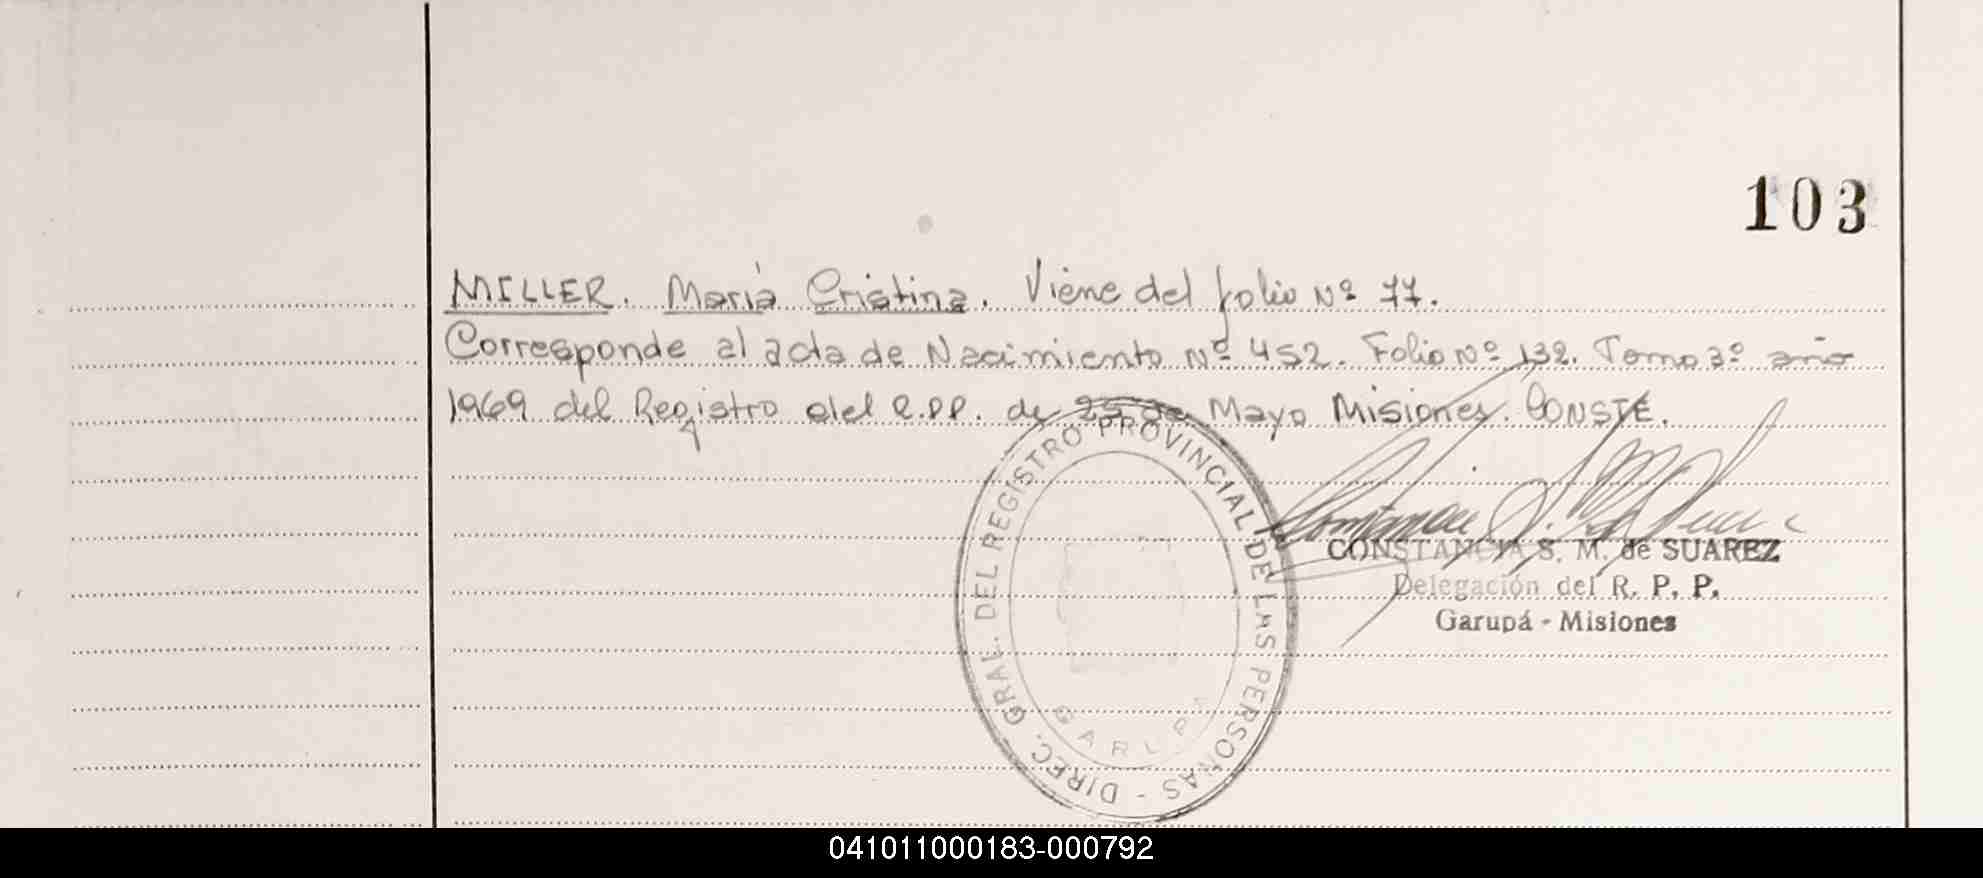 103
MILLER. María Cristina. Viene del folio Nº 77.
Corresponde al acta de Nacimiento Nº 452. Folio Nº 132. Tomo 3º año
1969 del Registro del R.PP. de 25 de Mayo Misiones. CONSTE.
DIREC. GRAL. DEL REGISTRO PROVINCIAL DE LAS PERSONAS -
GARUPA
CONSTANCIA S. M. de SUAREZ
Delegación del R. P. P.
Garupá - Misiones
041011000183-000792